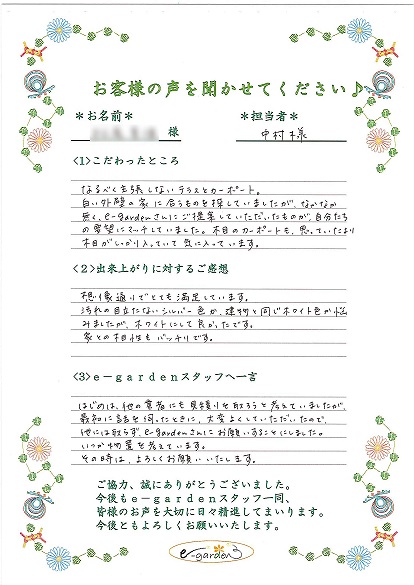 お客様の声を聞かせてください♪
＊お名前＊
＊担当者＊
様
中村様
<1>こだわったところ
なるべく主張しないテラスとカーポート。
白い外壁の家に合うものを探していましたが、なかなか
無く、e-gardenさんにご提案していただいたものが、自分たち
の要望にマッチしていました。木目のカーポートも、思っていたより
木目がしっかり入っていて気に入っています。
<2>出来上がりに対するご感想
想像通りでとても満足しています。
汚れの目立たないシルバー色か、建物と同じホワイト色か悩
みましたが、ホワイトにして良かったです。
家との相性もバッチリです。
<3>e－gardenスタッフへ一言
はじめは、他の業者にも見積りを取ろうと考えていましたが、
最初に話を伺ったときに、大変よくしていただいたので、
他には取らず、e-gardenさんにお願いすることにしました。
いつか物置を考えています。
その時は、よろしくお願いいたします。
ご協力、誠にありがとうございました。
今後もe－gardenスタッフ一同、
皆様のお声を大切に日々精進してまいります。
今後ともよろしくお願いいたします。
e-garden